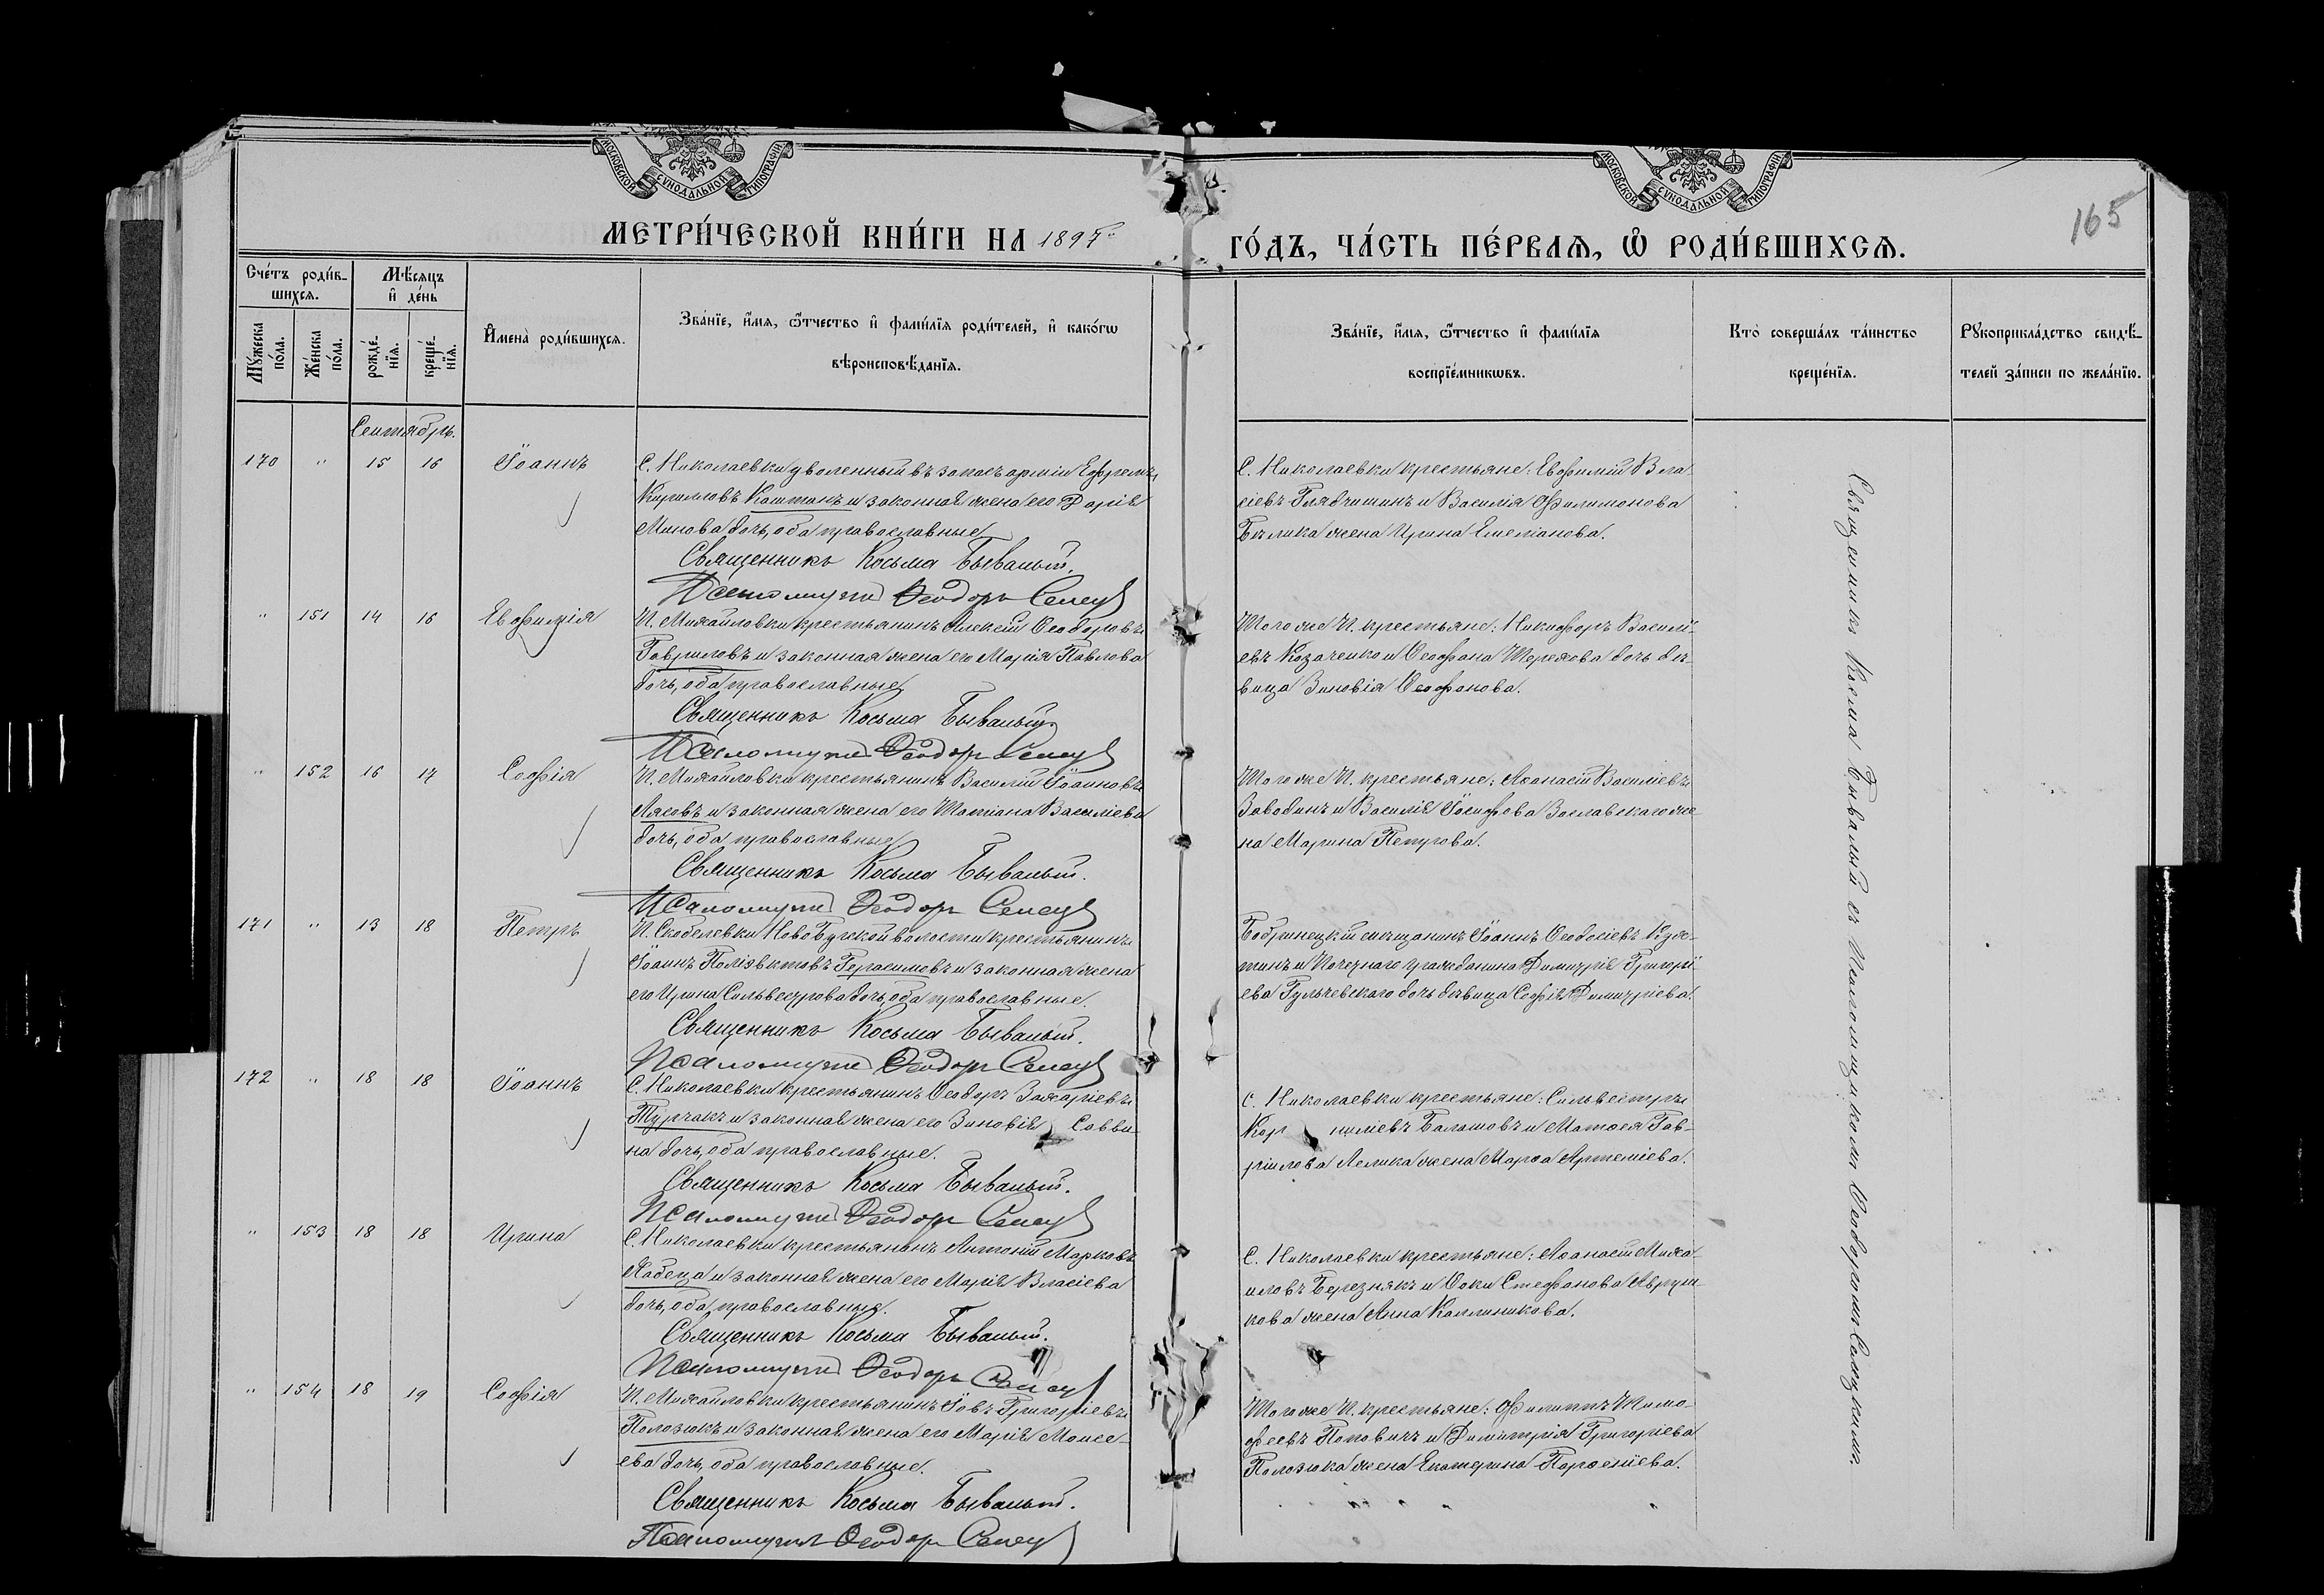 МОСКОВСКОЙ СУНОДАЛЬНОЙ ТИПОГРАФІИ
МОСКОВСКОЙ СУНОДАЛЬНОЙ ТИПОГРАФІИ
165
МЕТРИ́ЧЕСКОЙ КНИ́ГИ НА 1897
ГО́ДЪ, ЧА́СТЬ ПЕ́РВАѦ, Ѡ РОДИ́ВШИХСѦ.
Сче́тъ роди́в-
шихсѧ.
Мѣ́сѧцъ
и҆ де́нь
Мꙋ́жеска
по́ла.
Же́нска
по́ла.
рожде́-
нїѧ.
креще́-
нїѧ.
И҆мена̀ роди́вшихсѧ.
Зва́нїе, и҆́мѧ, ѻ҆́тчество и҆ фамилїѧ роди́телей, и҆ како́гѡ
вѣроисповѣ́данїѧ.
Зва́нїе, и҆́мѧ, ѻ҆́тчество и҆ фами́лїѧ
воспрїе́мникѡвъ.
Кто̀ соверша́лъ та́инство
креще́нїѧ.
Рꙋкоприкла́дство свидѣ́-
телей за́писи по жела́нїю.
Сентябрь.
170 " 15 16 Іоаннъ
С. Николаевки уволенный въ запасъ арміи Ефремъ
Кирилловъ Каштанъ и законная жена его Дарія
Минова дочь, оба православные
Священникъ Косьма Бывалый.
Псаломщикъ Ѳеодоръ
С. Николаевки крестьяне: Евфимій Вла-
сіевъ и Василія Филимонова
жена Ирина Емеліанова.
" 151 14 16 Евфимія
П. Михайловки крестьянинъ Алексій Ѳеодоровъ
Гавриловъ и законная жена его Марія Павлова
дочь, оба православные
Священникъ Косьма Бывалый.
Псаломщикъ Ѳеодоръ
Того же П. крестьяне: Никифоръ Василі-
евъ Козаченко и Ѳеофана Терехова дочь дѣ-
вица Зиновія Ѳеофанова.
" 152 16 17 Софія
П. Михайловки крестьянинъ Василій Іоанновъ
Лясовъ и законная жена его Татіана Василіева
дочь, оба православные
Священникъ Косьма Бывалый.
Псаломщикъ Ѳеодоръ
Того же П. крестьяне: Аѳанасій Василіевъ
Заводинъ и Василія Іосифова Заславскаго же-
на Марина Петрова.
171 " 13 18 Петръ
П. Скобелевки НовоБугской волости крестьянинъ
Іоаннъ Поліевктовъ Герасимовъ и законная жена
его Ирина Сильвестрова дочь, оба православные.
Священникъ Косьма Бывалый.
Псаломщикъ Ѳеодоръ
Бобринецкій мѣщанинъ Іоаннъ Ѳеодосіевъ
и Почетнаго гражданина Димитрія Григорі-
ева Гульчевскаго дочь дѣвица Софія Димитріева.
172 " 18 18 Іоаннъ
С. Николаевки крестьянинъ Ѳеодоръ Захаріевъ
Турчакъ и законная жена его Зиновія Савви-
на дочь, оба православные.
Священникъ Косьма Бывалый.
Псаломщикъ Ѳеодоръ
С. Николаевки крестьяне: Сильвестръ
Кор ниліевъ Балашовъ и Матѳея Гав-
ріилова Лелика жена Марѳа Артеміева.
" 153 18 18 Ирина
С. Николаевки крестьянинъ Антоній Марковъ
и законная жена его Марія Власіева
дочь, оба православные.
Священникъ Косьма Бывалый.
Псаломщикъ Ѳеодоръ
С. Николаевки крестьяне: Аѳанасій Миха-
иловъ Березнякъ и Ѳоки Стефанова
жена Анна Каллиникова.
" 154 18 19 Софія
П. Михайловки крестьянинъ Іовъ Григоріевъ
Полозюкъ и законная жена его Марія Моисе-
ева дочь, оба православные.
Священникъ Косьма Бывалый.
Псаломщикъ Ѳеодоръ
Того же П. крестьяне: Филиппъ Тимо-
феевъ Поповичъ и Димитрія Григоріева
Полозюка жена Екатерина Парѳеніева.
Священникъ Косма Бывалый съ Псаломщикомъ Ѳеодоромъ